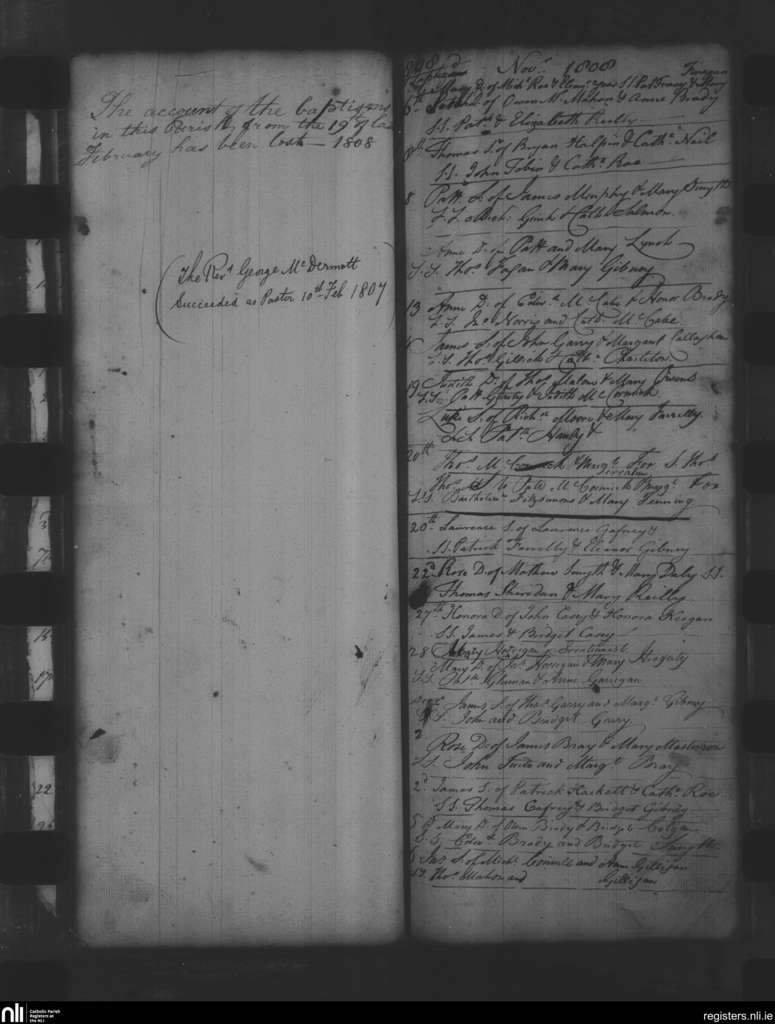 The account of the baptisms
in this Parish, from the 19th of
February has been lost — 1808
(The Revd. George McDermott
Succeeded as Pastor 10th Feb 1807)
1808 Novr. 1808
D. of Michl. Roe & SS. Patt Tracy & Mary Finegan
6th D. of Owen McMahon & Anne Brady
S.S. Patk. & Elizabeth Reilly
8th Thomas S. of Bryan Halpin & Cathe. Neil
S.S. John Tobin & Cathe. Roe
8 Patt. S. of James Murphy & Mary Smyth
S.S. Mich: & Cath Salmon
Anne D. of Patt and Mary Lynch
S.S. Thos. Fagan & Mary Gibney
13 Anne D. of Edwd. McCabe & Honor Brady
S.S. Jno. Norris and Cath. McCabe
James S. of John Garry & Margaret Callaghan
S.S. Thos. Gillick & Cathe. Charleton
19 Judith D. of Thos. Slalow & Mary Owens
S.S. Patt Ginty & Judith McCormick
Luke S. of Richd. Moore & Mary Farrelly
Patk. Handy &
20th
Thos. Mc & Margt. Fox S. Thos.
Thos. S. to Patt McCormick Margt. Fox
S.S. Bartholimew Fitzsimons & Mary Finning
20th Lawrence S. of Lawrence Gafney &
SS. Patrick Farrelly & Eleanor Gibney
22d Rose D. of Mathew Smyth & Mary Daly SS.
Thomas Sheridan & Mary Reilly
27th Honora D. of John Casey & Honora Keegan
SS. James & Bridget Casey
28 Mary Horigan
Mary D. of Jas. Horrigan & Mary Hegerty
S.S. & Anne Garrigan
James S. of Thos. Garry and Margt. Gibney
S.S. John and Bridget Garry
3
Rose D. of James Bray & Mary Masterson
SS. John Tuite and Margt. Bray
2d James S. of Patrick Hackett & Cathe. Roe
SS. Thomas Cafrey & Bridget Gibney
5 Mary D. of Owen Brady & Bridgt. Colgan
S.S. Edwd. Brady and Bridget Smyth
Jas. S. of Michl. Connell and Ann Gilligan
SS. Thos. Mahon and Gilligan
nli
Catholic Parish
Registers at
the NLI
registers.nli.ie